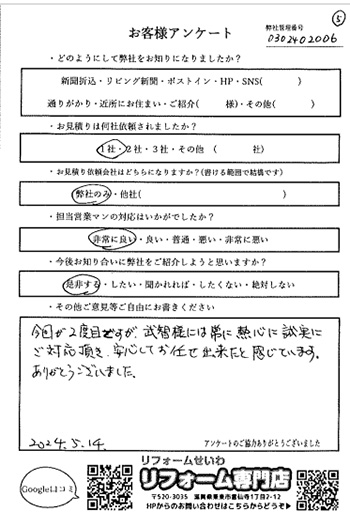 ⑤
お客様アンケート
弊社管理番号
0302402006
・どのようにして弊社をお知りになりましたか？
新聞折込・リビング新聞・ポストイン・HP・SNS( )
通りがかり・近所にお住まい・ご紹介( 様)・その他( )
・お見積りは何社依頼されましたか？
1社・2社・3社・その他 ( 社)
・お見積り依頼会社はどちらになりますか？(書ける範囲で結構です)
弊社のみ・他社( )
・担当営業マンの対応はいかがでしたか？
非常に良い・良い・普通・悪い・非常に悪い
・今後お知り合いに弊社をご紹介しようと思いますか？
是非する・したい・聞かれれば・したくない・絶対しない
・その他ご意見等ご自由にお書きください
今回が2度目ですが、武智様には常に熱心に誠実に
ご対応頂き、安心してお任せ出来たと感じています。
ありがとうございました。
2024.5.14.
アンケートのご協力ありがとうございました
Google口コミ
リフォームせいわ
リフォーム専門店
〒520-3035 滋賀県栗東市霊仙寺1丁目2-12
HPからのお問い合わせはこちらからどうぞ▶